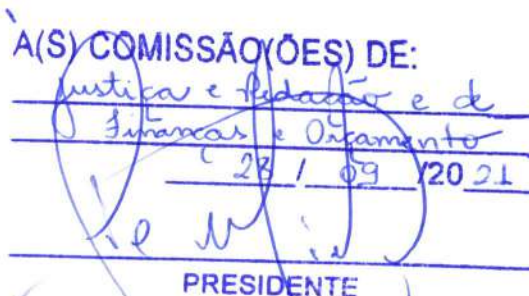 À(S) COMISSÃO(ÕES) DE:
Justiça e Redação e de
Finanças e Orçamento
28 / 09 /20 21
PRESIDENTE